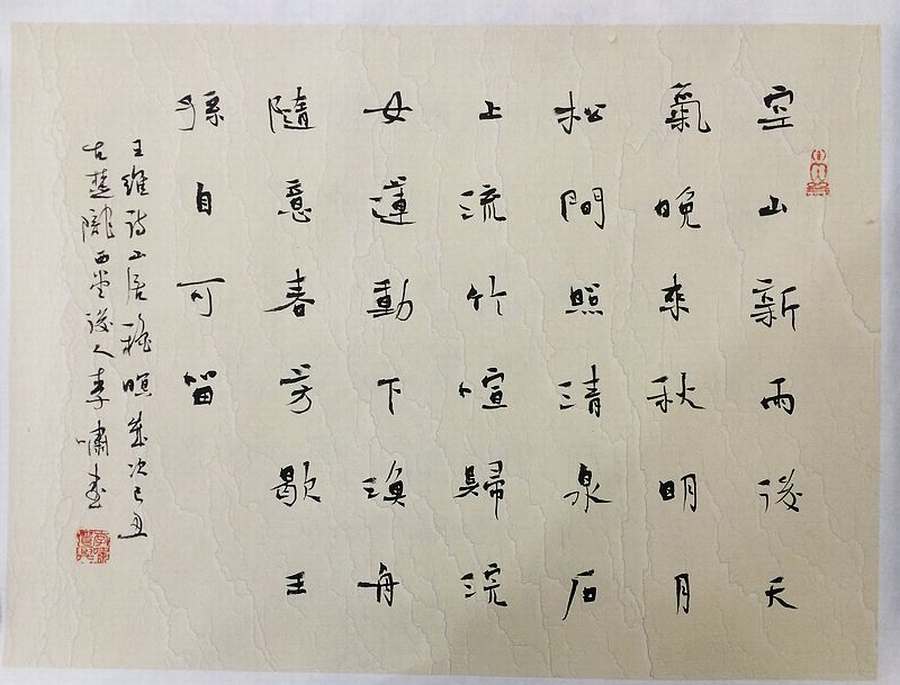 空山新雨後天
氣晚来秋明月
松間照清泉石
上流竹喧歸浣
女蓮動下漁舟
隨意春芳歇王
孫自可留
王維詩山居秋暝歲次己丑
古楚隴西堂後人李嘯書